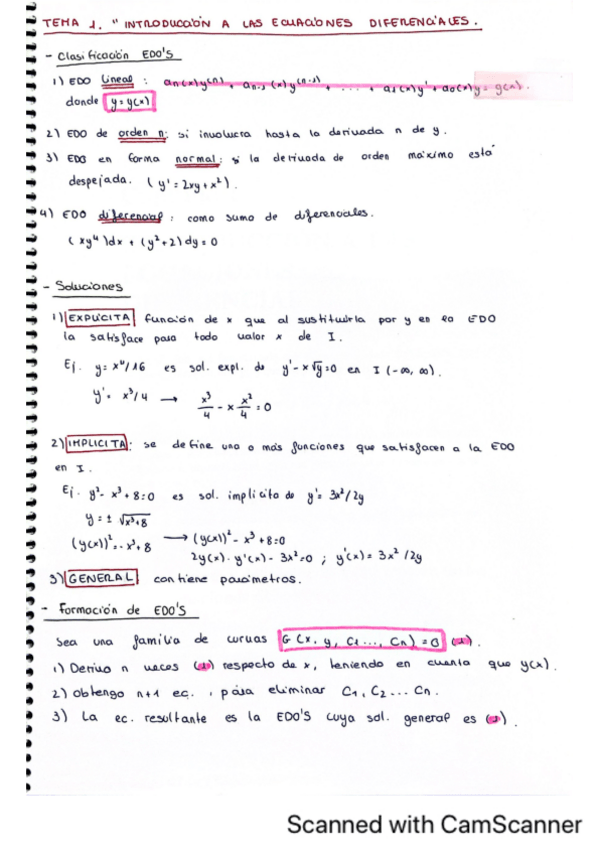 TEMA 1. "INTRODUCCIÓN A LAS ECUACIONES DIFERENCIALES.
- Clasificación EDO'S
1) EDO lineal : an(x)y^(n) + an-1(x)y^(n-1) + ... + a1(x)y' + a0(x)y = g(x).
donde y=y(x)
2) EDO de orden n: si involucra hasta la derivada n de y.
3) EDO en forma normal: si la derivada de orden máximo está
despejada. ( y' = 2xy + x² ).
4) EDO diferencial : como suma de diferenciales.
( xy⁴ )dx + (y² + 2) dy = 0
- Soluciones
1) EXPLÍCITA función de x que al sustituirla por y en la EDO
la satisface para todo valor x de I.
Ej. y = x⁴/16 es sol. expl. de y' - x√y = 0 en I (-∞, ∞).
y' = x³/4 → x³/4 - x x²/4 = 0
2) IMPLICITA: se define una o más funciones que satisfacen a la EDO
en I.
Ej. y² - x³ + 8 = 0 es sol. implicita de y' = 3x²/2y
y = ± √x³+8
(y(x))² = - x³ + 8 → (y(x))² - x³ + 8 = 0
2y(x) · y'(x) - 3x² = 0 ; y'(x) = 3x² /2y
3) GENERAL contiene parámetros.
- Formación de EDO'S
Sea una familia de curvas G (x, y, C1 ..., Cn) = 0 (*).
1) Derivo n veces (*) respecto de x, teniendo en cuenta que y(x).
2) obtengo n+1 ec. , para eliminar C1, C2 ... Cn.
3) La ec. resultante es la EDO'S cuya sol. general es (*).
Scanned with CamScanner